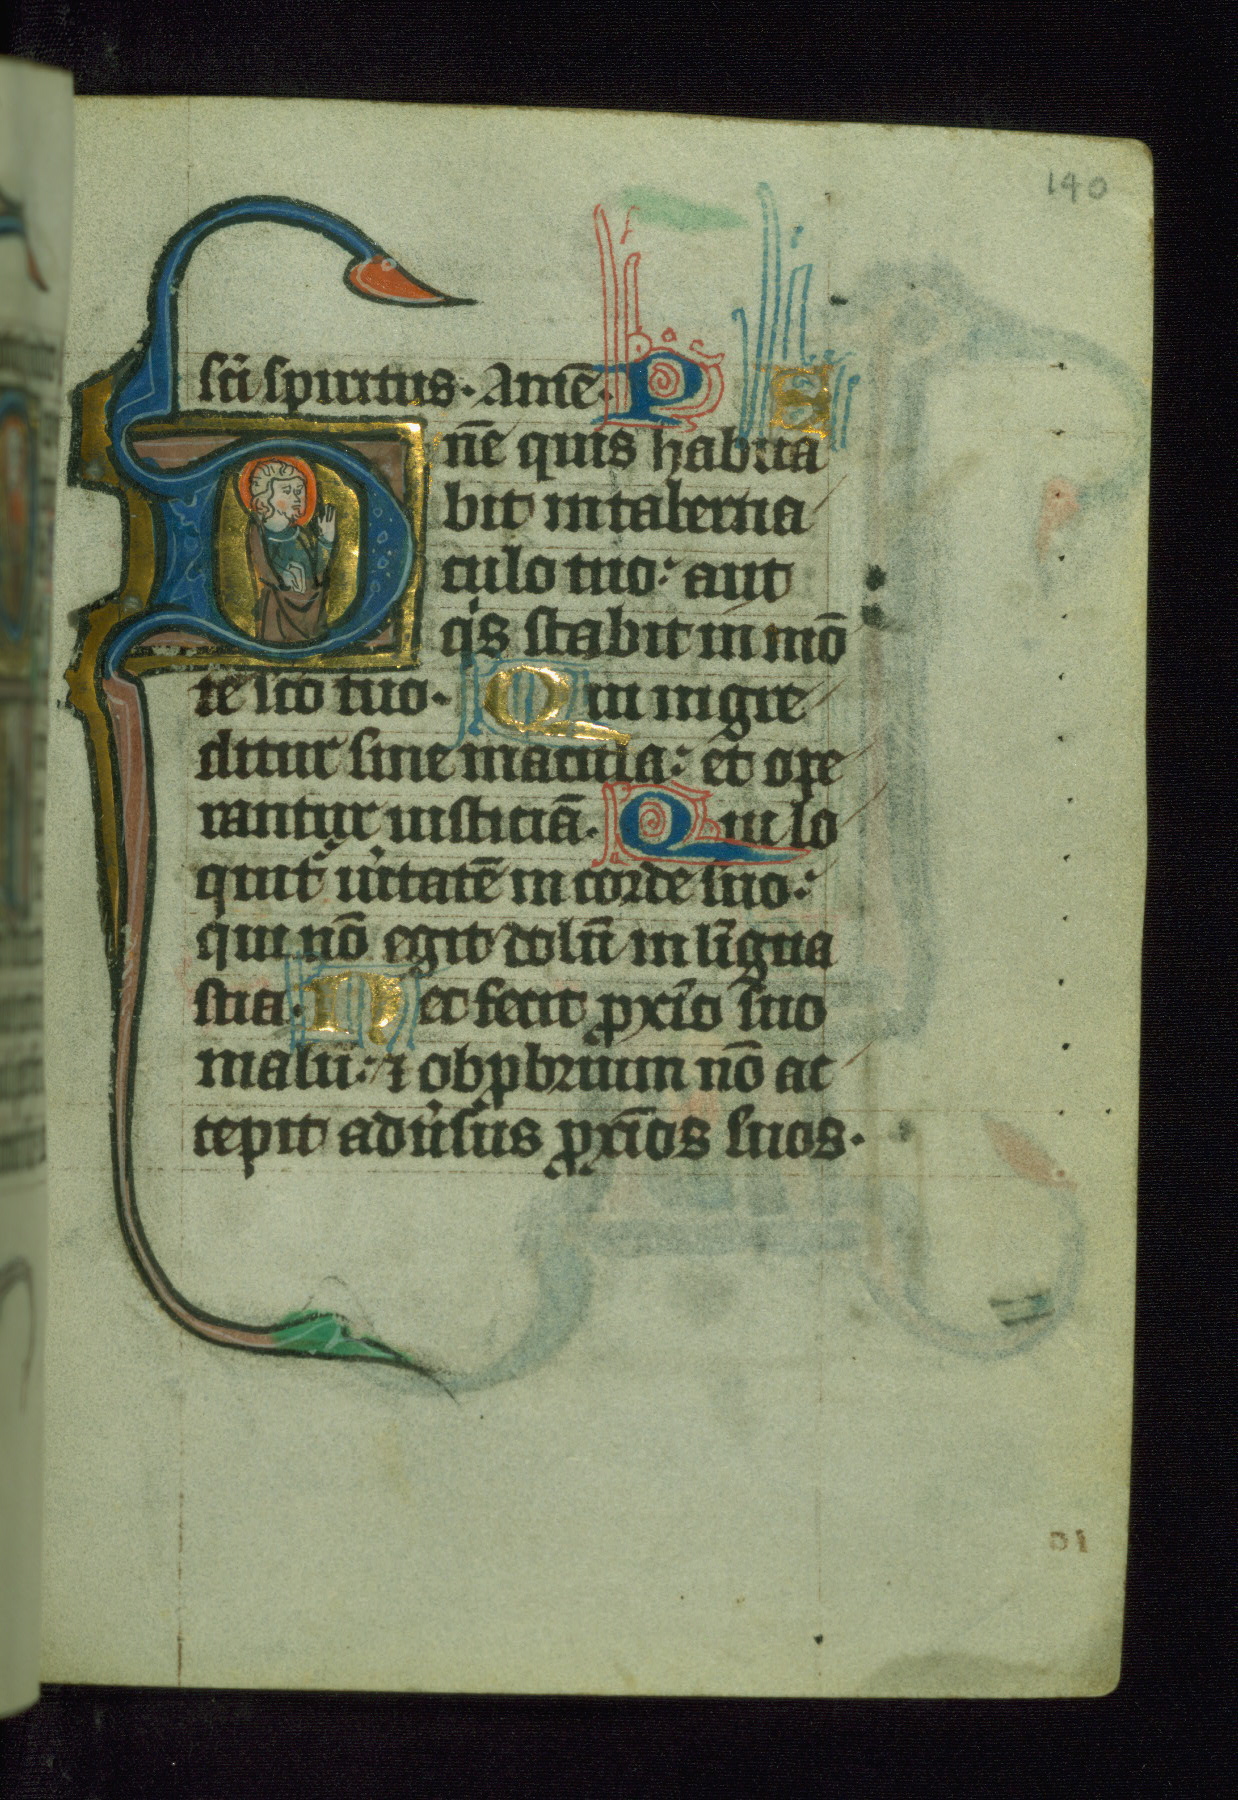 140
sc̄i spiritus. Amē. P S
Dn̄e quis habita
bit in taberna
culo tuo: aut
qͥs stabit in mō
te sc̄o tuo. Qui ingre
ditur sine macula: et ope
rantur iusticiā. Qui lo
quit᷑ uͥitatē in corde suo:
qui nō egit dolū in lingua
sua. Nec fecit ꝓxīo suo
malū: ⁊ obꝓbrium nō ac
cepit aduͥsus ꝓxīos suos.